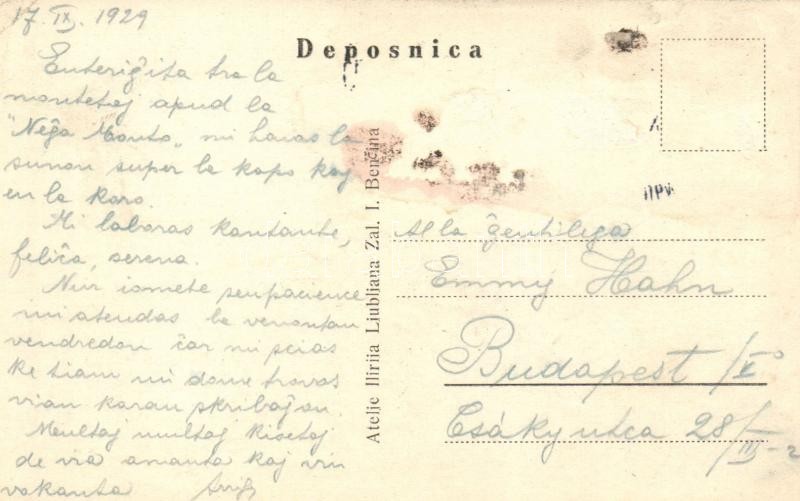 17. IX. 1929
Deposnica
Enteriĝita tra la
montetoj apud la
"Neĝa Monto„ mi havas la
sunon super la kapo kaj
en la koro.
Mi laboras kantante,
feliĉa, serena.
Nur iomete senpacience
mi atendas la venontan
vendredon ĉar mi scias
ke tiam mi dome trovos
vian karan skribaĵon.
Multaj multaj kisetoj
de via amanta kaj vin
vokanta
Atelje Ilirija Ljubljana Zal. I. Benčina
Al la ĝentilega
Emmy Hahn
Budapest /X°
Csáky utca 28/
III-2